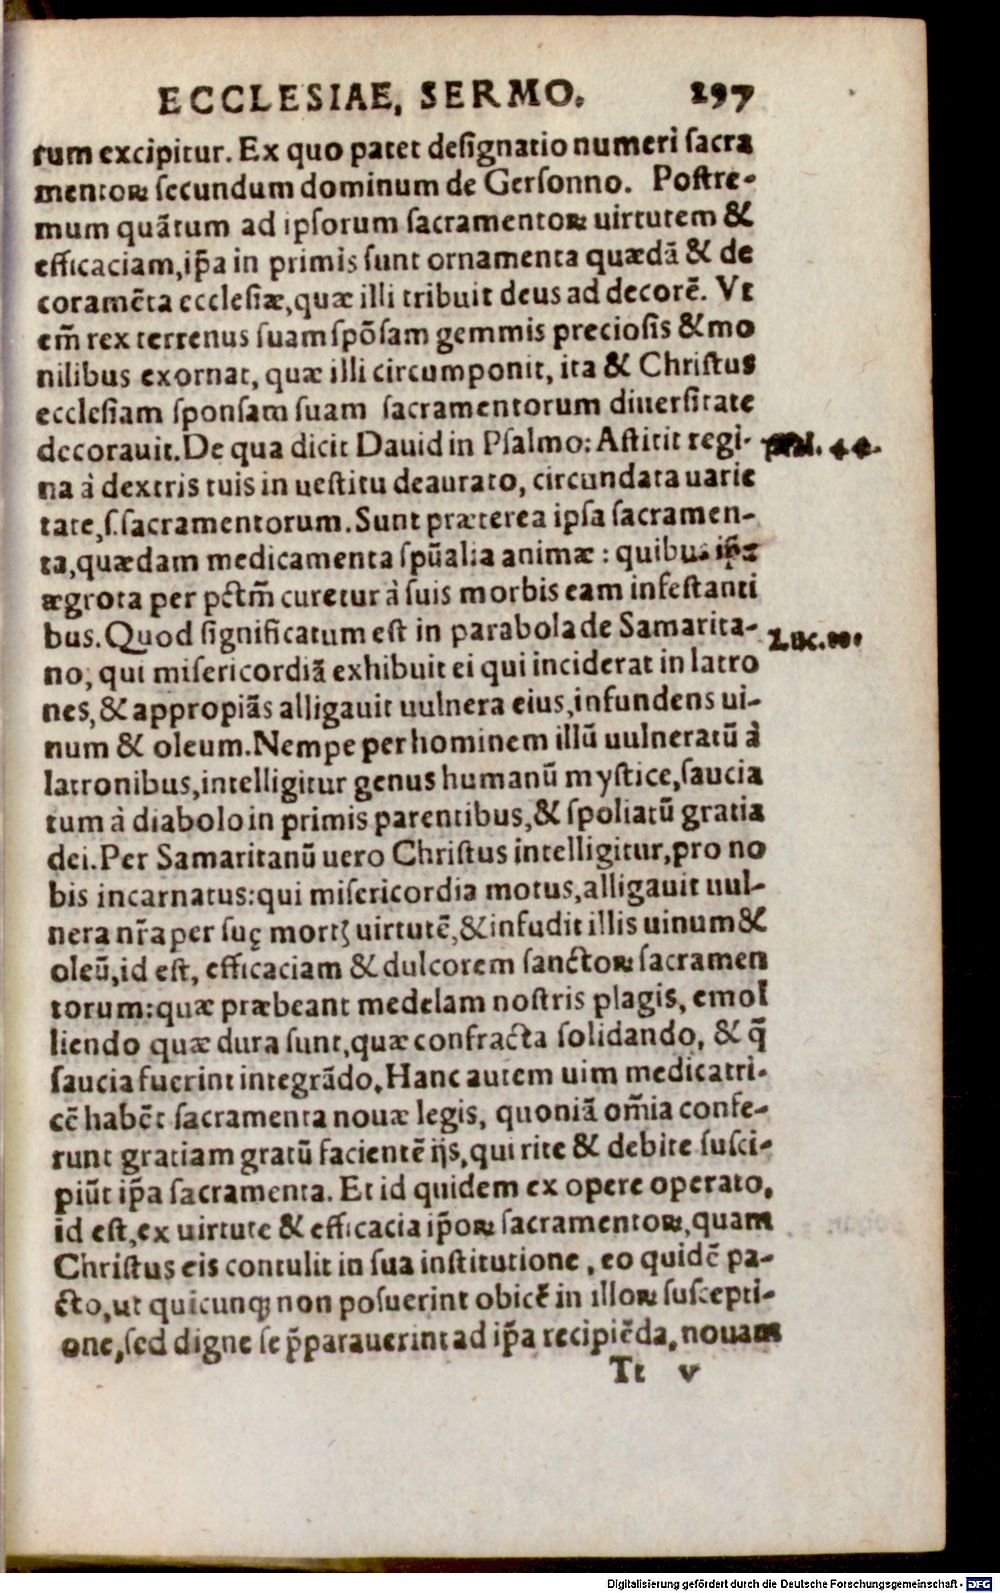 ECCLESIAE, SERMO. 297
tum excipitur. Ex quo patet deſignatio numeri ſacra
mentoꝝ ſecundum dominum de Gerſonno. Poſtre-
mum quãtum ad ipſorum ſacramentoꝝ uirtutem &
efficaciam, ip̃a in primis ſunt ornamenta quædã & de
coramẽta eccleſiæ, quæ illi tribuit deus ad decorẽ. Vt
em̃ rex terrenus ſuam ſpõſam gemmis precioſis & mo
nilibus exornat, quæ illi circumponit, ita & Chriſtus
eccleſiam ſponſam ſuam ſacramentorum diuerſitate
decorauit. De qua dicit Dauid in Pſalmo: Aſtitit regi- pſal. 44.
na à dextris tuis in ueſtitu deaurato, circundata uarie
tate, ſ. ſacramentorum. Sunt præterea ipſa ſacramen-
ta, quædam medicamenta ſpũalia animæ: quibus ip̃a
ægrota per pctm̃ curetur à ſuis morbis eam infeſtanti
bus. Quod ſignificatum eſt in parabola de Samarita- Luc.
no, qui miſericordiã exhibuit ei qui inciderat in latro
nes, & appropiãs alligauit uulnera eius, infundens ui-
num & oleum. Nempe per hominem illũ uulneratũ à
latronibus, intelligitur genus humanũ myſtice, ſaucia
tum à diabolo in primis parentibus, & ſpoliatũ gratia
dei. Per Samaritanũ uero Chriſtus intelligitur, pro no
bis incarnatus: qui miſericordia motus, alligauit uul-
nera nr̃a per ſuę mortꝭ uirtutẽ, & infudit illis uinum &
oleũ, id eſt, efficaciam & dulcorem ſanctoꝝ ſacramen
torum: quæ præbeant medelam noſtris plagis, emol
liendo quæ dura ſunt, quæ confracta ſolidando, & q̃
ſaucia fuerint integrãdo. Hanc autem uim medicatri-
cẽ habẽt ſacramenta nouæ legis, quoniã om̃ia confe-
runt gratiam gratũ facientẽ ijs, qui rite & debite ſuſci-
piũt ip̃a ſacramenta. Et id quidem ex opere operato,
id eſt, ex uirtute & efficacia ip̃oꝝ ſacramentoꝝ, quam
Chriſtus eis contulit in ſua inſtitutione, eo quidẽ pa-
cto, ut quicunqꝫ non poſuerint obicẽ in illoꝝ ſuſcepti-
one, ſed digne ſe p̃parauerint ad ip̃a recipiẽda, nouam
Tt v
Digitalisierung gefördert durch die Deutsche Forschungsgemeinschaft - DFG